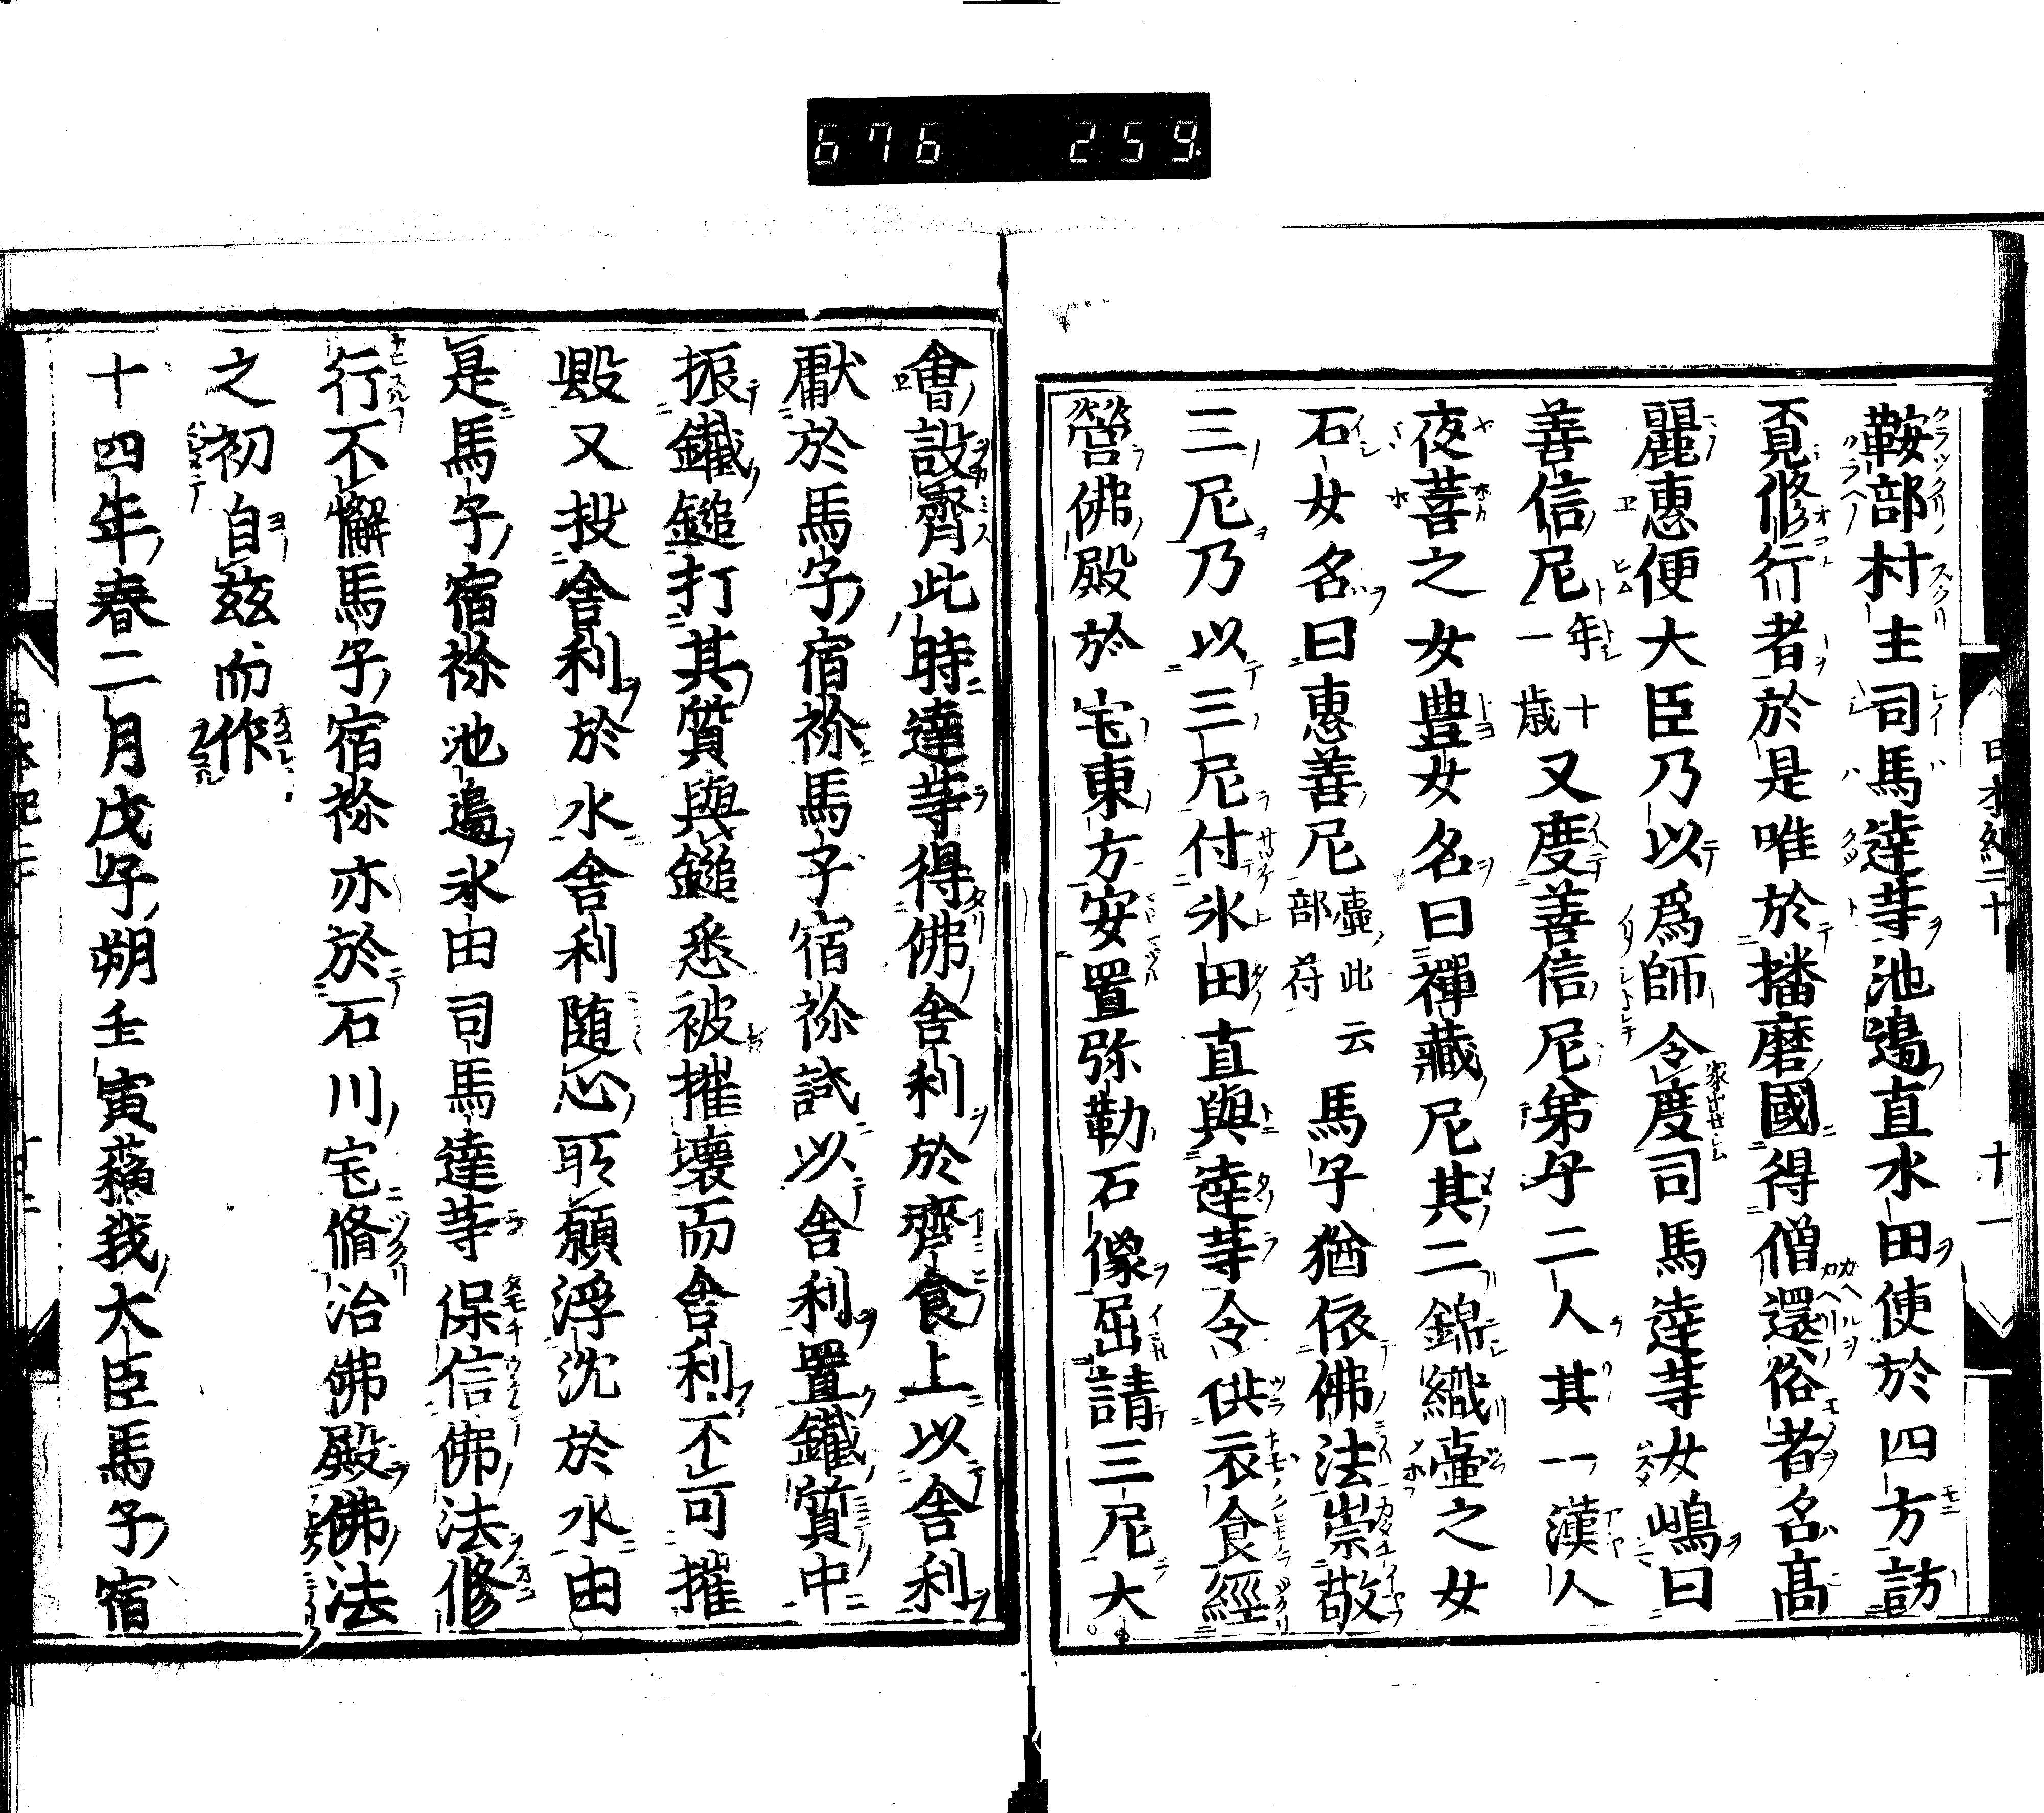 676 259
日本紀二十 十一
鞍部村主司馬達等池邉直水田使於四方訪
覓修行者於是唯於播磨國得僧還俗者名髙
麗惠便大臣乃以爲師令度司馬達等女嶋曰
善信尼年十一歳又度善信尼弟子二人其一漢人
夜菩之女豊女名曰禪藏尼其二錦織壷之女
石女名曰惠善尼壷此云都苻馬子猶依佛法崇敬
三尼乃以三尼付氷田直與達等令供衣食經
營佛殿於宅東方安置弥勒石像屈請三尼大
會設齊此時達等得佛舎利於齊食上以舎利
獻於馬子宿祢馬子宿祢試以舎利置鐵質中
振鐵鎚打其質與鎚悉被摧壊而舎利不可摧
毀又投舎利於水舎利随心所願浮沈於水由
是馬子宿祢池邉氷田司馬達等保信佛法修
行不懈馬子宿祢亦於石川宅脩治佛殿佛法
之初自兹而作
十四年春二月戊子朔壬寅蘓我大臣馬子宿